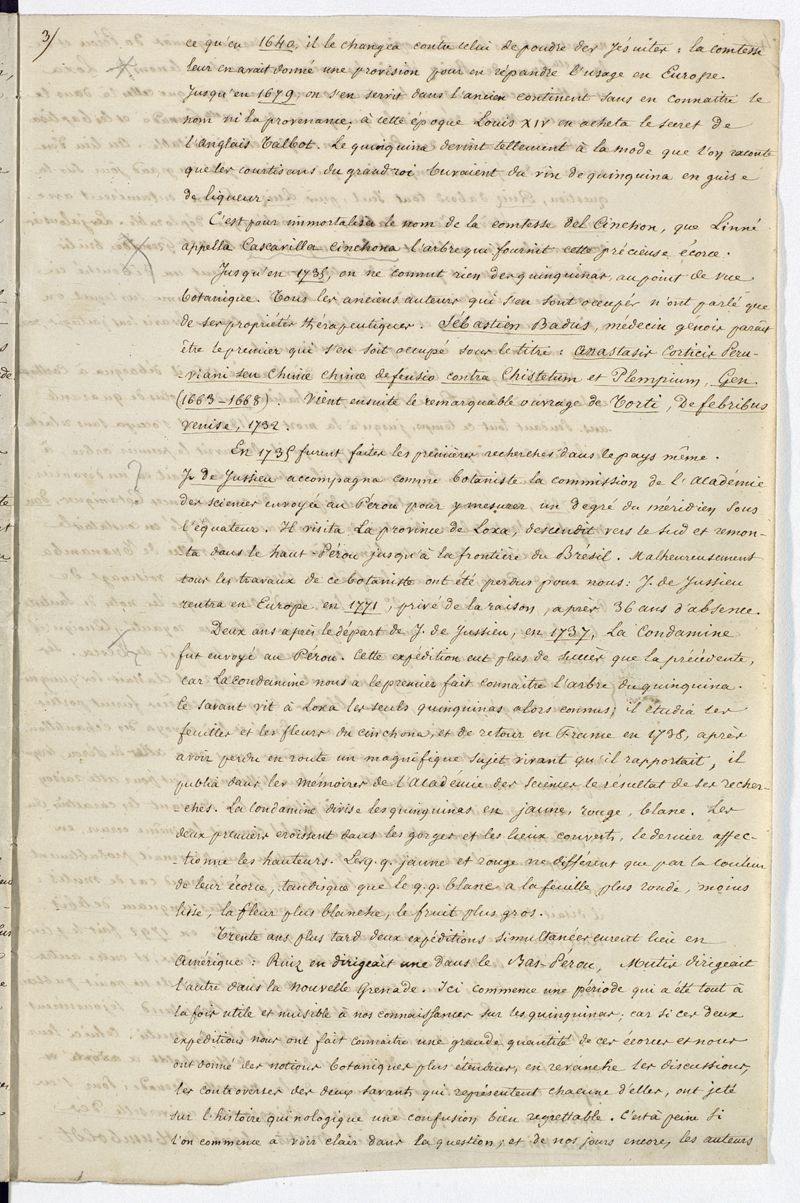 3/
ce qu'en 1640, il le changea contre celui de poudre des Jésuites : la comtesse
leur en avait donné une provision pour en répandre l'usage en Europe.
Jusqu'en 1679, on s'en servit dans l'ancien continent sans en connaître le
nom ni la provenance, à cette époque Louis XIV en acheta le secret de
l'anglais Talbot. Le quinquina devint tellement à la mode que l'on raconte
que les courtisans du grand roi buvaient du vin de quinquina en guise
de liqueur.
C'est pour immortaliser le nom de la comtesse del Cinchon, que Linné
appella Cascarilla cinchona l'arbre qui fournit cette précieuse écorce.
Jusqu'en 1735, on ne connut rien des quinquinas, au point de vue
botanique. Tous les anciens auteurs qui s'en sont occupés n'ont parlé que
de ses propriétés thérapeutiques. Sébastien Badus, médecin genois paraît
être le premier qui s'en soit occupé sous le titre : Anastasis corticis Peru-
-viani seu Chinæ Chinæ defensio contra Chistetum et Plempium, Gen
(1663-1668). Vient ensuite le remarquable ouvrage de Torti, De febribus
Venise, 1732.
En 1735 furent faites les premières recherches dans le pays même.
J. de Jussieu accompagna comme botaniste la commission de l'Académie
des sciences envoyée au Pérou pour y mesurer un degré du méridien sous
l'équateur. Il visita la province de Loxa, descendit vers le sud et remon-
ta dans le haut-Pérou jusqu'à la frontière du Brésil. Malheureusement
tous les travaux de ce botaniste ont été perdus pour nous : J. de Jussieu
rentra en Europe en 1771, privé de la raison, après 36 ans d'absence.
Deux ans après le départ de J. de Jussieu, en 1737, La Condamine
fut envoyé au Pérou. Cette expédition eut plus de succès que la précédente,
car La Condamine nous a le premier fait connaître l'arbre du quinquina.
Le savant vit à Loxa les seuls quinquinas alors connus ; il étudia les
feuilles et les fleurs du cinchona, et de retour en France en 1738, après
avoir perdu en route un magnifique sujet vivant qu'il rapportait, il
publia dans les Mémoires de l'Académie des sciences le résultat de ses recher-
-ches. La Condamine divise les quinquinas en jaune, rouge, blanc. Les
deux premiers croissent dans les gorges et les lieux couverts, le dernier affec-
-tionne les hauteurs. Les q.q. jaune et rouge ne diffèrent que par la couleur
de leur écorce, tandis que le q.q. blanc a la feuille plus ronde, moins
lisse, la fleur plus blanche, le fruit plus gros.
Trente ans plus tard deux expéditions simultanées eurent lieu en
Amérique : Ruiz en dirigeait une dans le Bas-Pérou, Mutis dirigeait
l'autre dans la nouvelle Grenade. Ici commence une période qui a été tout à
la fois utile et nuisible à nos connaissances sur les quinquinas ; car si ces deux
expéditions nous ont fait connaître une grande quantité de ces écorces et nous
ont donné des notions botaniques plus étendues, en revanche les discussions,
les controverses des deux savants, qui représentent chacune d'elles, ont jeté
sur l'histoire quinologique une confusion bien regrettable. C'est à peine si
l'on commence à voir clair dans la question, et de nos jours encore, les auteurs